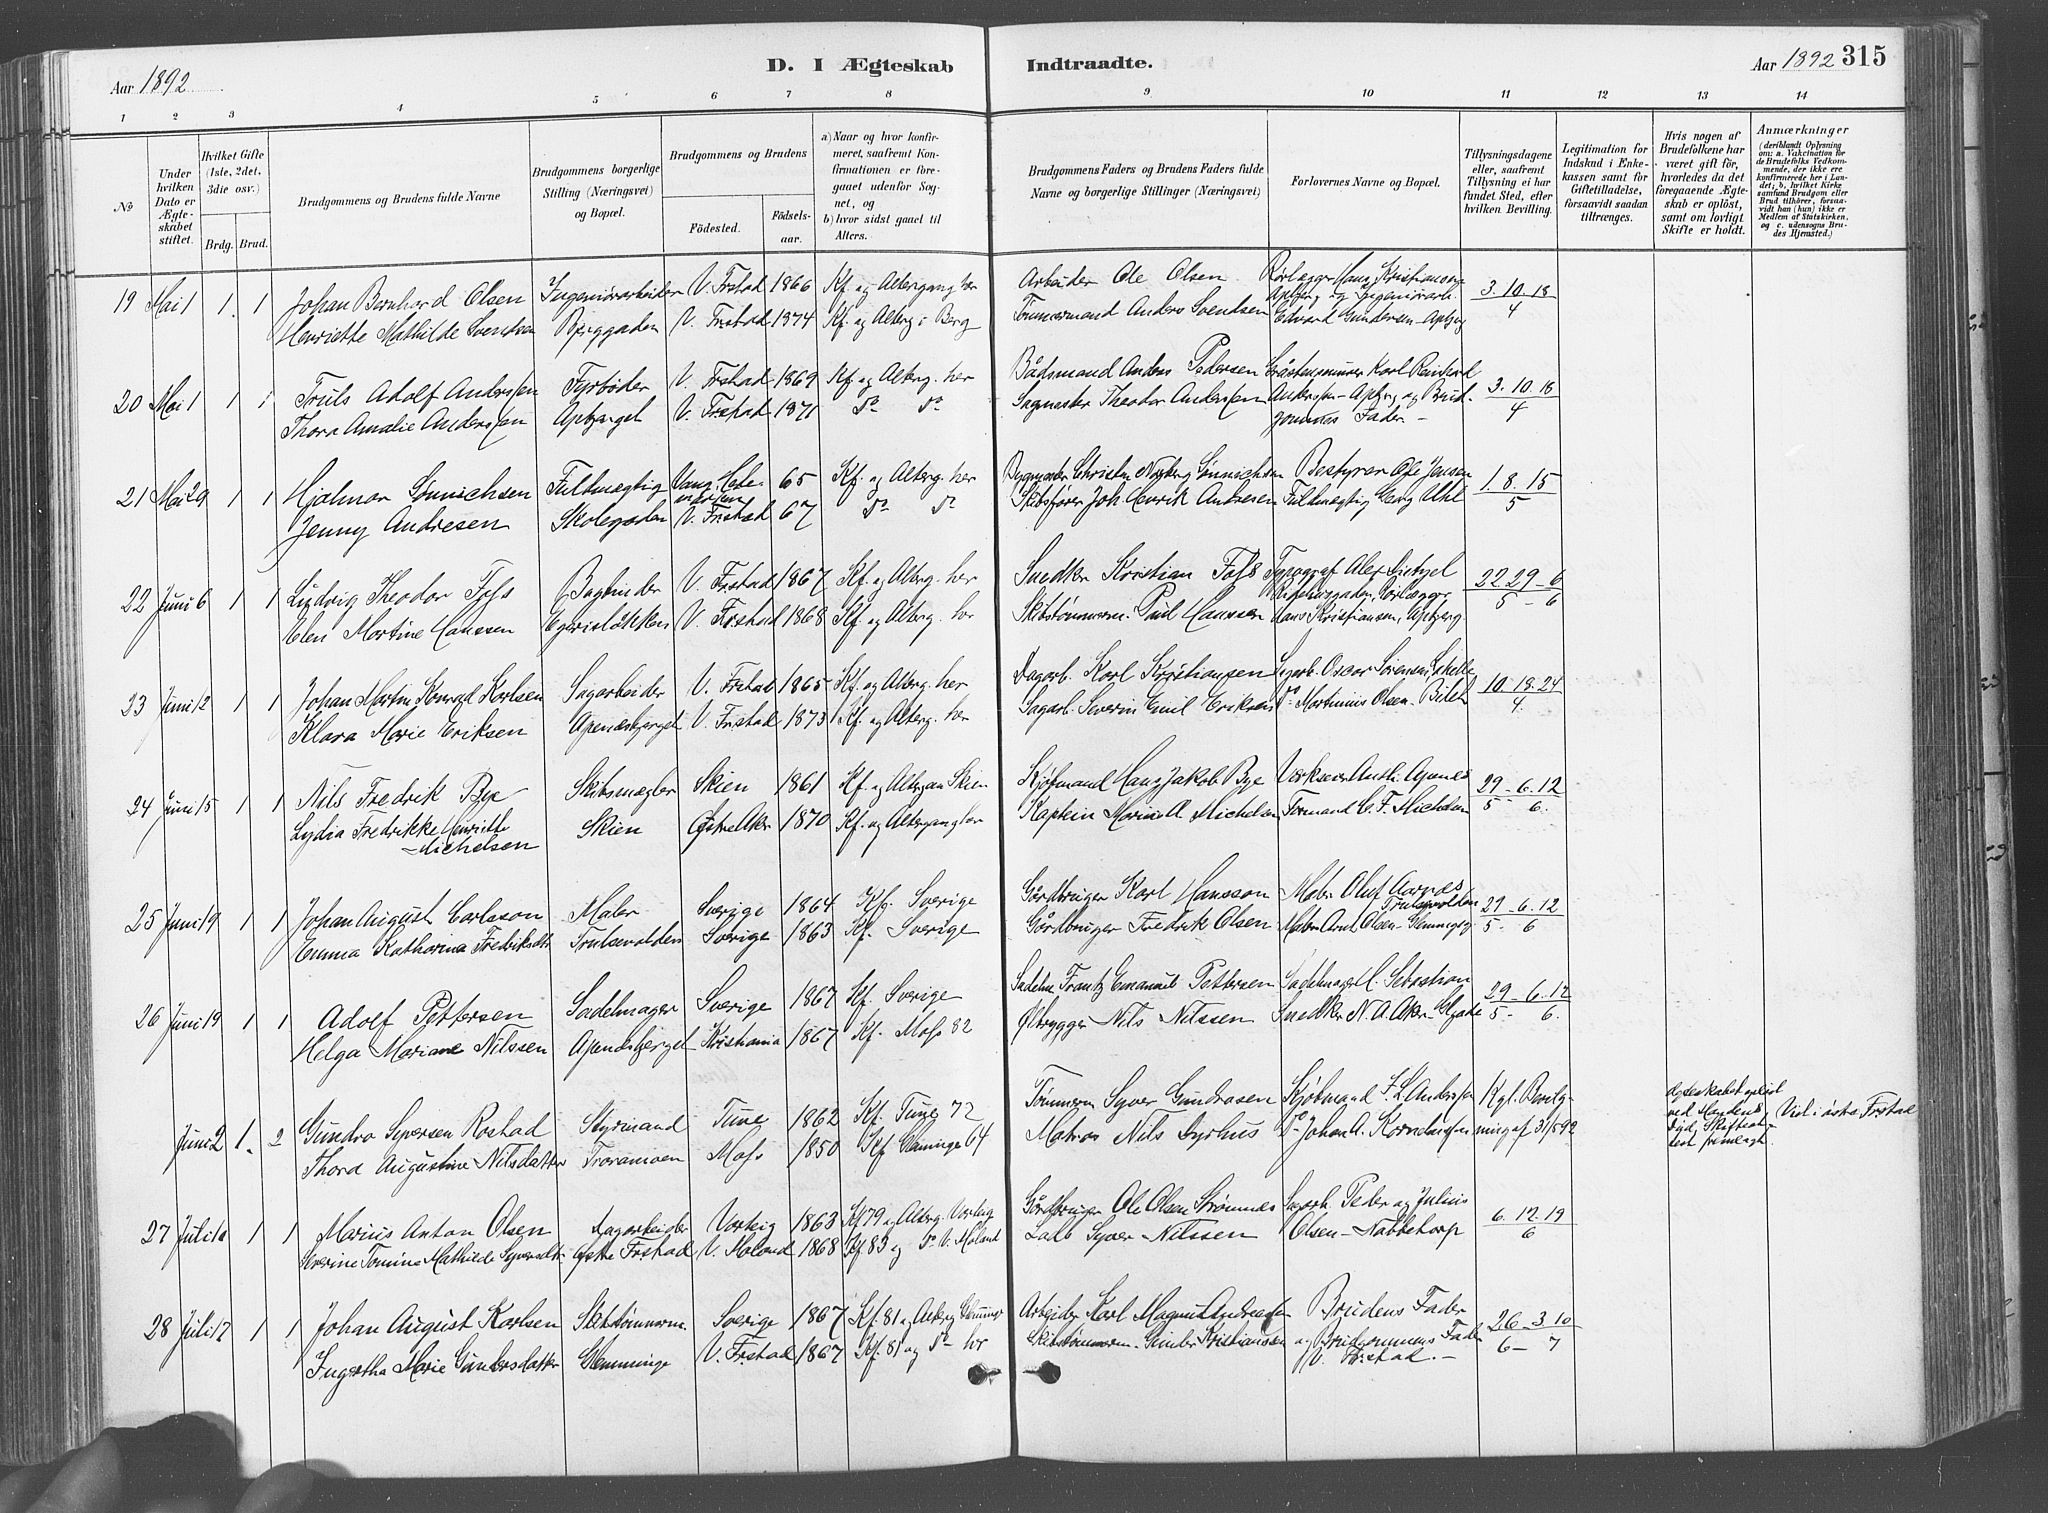 Aar 1892
D. I Ægteskab
Indtraadte.
Aar 1892 315
1 2 3 4 5 6 7 8 9 10 11 12 13 14
No
Under hvilken Dato er Ægteskabet stiftet.
Hvilket Gifte (1ste, 2det, 3die osv.)
Brdg. Brud.
Brudgommens og Brudens fulde Navne
Brudgommens borgerlige Stilling (Næringsvei) og Bopæl.
Brudgommens og Brudens
Födested. Födselsaar.
a) Naar og hvor konfirmeret, saafremt Konfirmationen er foregaaet udenfor Sognet, og
b) hvor sidst gaaet til Alters.
Brudgommens Faders og Brudens Faders fulde Navne og borgerlige Stillinger (Næringsvei)
Forlovernes Navne og Bopæl.
Tillysningsdagene eller, saafremt Tillysning ei har fundet Sted, efter hvilken Bevilling.
Legitimation for Indskud i Enkekassen samt for Giftetilladelse, forsaavidt saadan tiltrænges.
Hvis nogen af Brudefolkene har været gift för, hvorledes da det foregaaende Ægteskab er oplöst, samt om lovligt Skifte er holdt.
Anmærkninger
(deriblandt Oplysning om: a. Vaccination for de Brudefolks Vedkommende, der ikke ere konfirmerede her i Landet; b. hvilket Kirkesamfund Brudgom eller Brud tilhörer, forsaavidt han (hun) ikke er Medlem af Statskirken, og c. udensogns Brudes Hjemsted.)
19 Mai 1 1 1 Johan Bernhard Olsen Ingeniørarbeider V. Frstad 1866 Kf. og Altergang her Arbeider Ole Olsen Rørlægger Hans Kristiansen 3. 10. 18
Henriette Mathilde Svendsen Bjerggaden V. Frstad 1874 Kf. og Alterg i Berg Tømmermand Anders Svendsen Edvard Gundersen 4
20 Mai 1 1 1 Truls Adolf Anderssen Fyrbøder V. Frstad 1869 Kf. og Alterg. her Bådsmand Anders Pedersen Karl Reinhard 3. 10. 18
Thora Amalie Anderssen V. Frstad 1871 do do Sagmester Theodor Anderssen og Brudgommens Fader 4
21 Mai 29 1 1 Hjalmar Sønnichsen Fuldmægtig Vang Hedemarken 65 Kf. og Alterg. her Sønnichsen Bestyrer Ole Jensen 1. 8. 15
Jenny Andresen Skolegaden V. Frstad 67 do do Skibsfører Joh Henrik Andresen Fuldmægtig Georg Uhl 5
22 Juni 6 1 1 Ludvig Theodor Foss Bogbinder V. Frstad 1867 Kf. og Alterg. her Snedker Kristian Foss Typograf Alex 22 29 - 6
Elen Martine Hanssen V. Frstad 1868 Kf. og Alterg. her Skibstømmerm. Paul Hanssen Hans Kristiansen, 5 - 6
23 Juni 12 1 1 Johan Martin Konrad Karlsen Sagarbeider V. Frstad 1865 Kf. og Alterg. her Dagarb. Karl Kristiansen Sagarb. Oscar Sørensen 10. 18. 24
Klara Marie Eriksen Apenæsbjerget V. Frstad 1873 Kf. og Alterg. her Sagarb. Severin Emil Eriksen do Martinius Olsen 4.
24 Juni 15 1 1 Nils Fredrik Bye Skibsmægler Skien 1861 Kf. og Altergan Skien Skjøfmand Hans Jakob Bye 29 - 6. 12
Lydia Fredrikke Henriette Michelsen Skien Østre Aker 1870 Kf. og Altergang her Kaptein Michelsen 5 - 6.
25 Juni 19 1 1 Johan August Carlsson Maler Sverige 1864 Kf. Sverige Gårdbruger Karl Hansson Maler Oluf Aarnæs Trulsevolden 29 - 6. 12
Emma Katharina Fredriksdtr Trulsevolden Sverige 1863 Kf. Sverige Gårdbruger Fredrik Olsen Olsen 5 - 6
26 Juni 19 1 1 Adolf Pettersen Sadelmager Sverige 1867 Kf. Sverige Frantz Emanuel Pettersen Sadelmager C. Sebastian 29 - 6. 12
Helga Mariane Nilssen Apenæsbjerget Kristiania 1867 Kf. Moss 82 Ølbrygger Nils Nilssen Snedker N. A. Aker 5 - 6.
Juni 2 1. 2 Gundro Syversen Rostad Styrmand Tune 1862 Kf. Tune 72 Tømmerm Syver Gundrosen Kjøbmand F. L. Anderssen Kgl. Bevilgning af 31/5 92 Ægteskabet opløst ved Mandens Død, Skifteattest fremlagt. Viet i østre Frstad
Thora Augustine Nilsdatter Traramoen Moss 1850 Kf Glemminge 64 Matros Nils Dyrhus do Johan A. Korneliussen
27 Juli 10 1 1 Marius Anton Olsen Dagarbeider Varteig 1863 Kf 79 og Alterg. Varteig Gårdbruger Ole Olsen Strømnæs Sagarb. Peder og Julius 6. 12. 19
Severine Tomine Mathilde Syversdtr Østre Frstad V. Moland 1868 Kf. 83 og do V. Moland Syver Nilssen Olsen - Nabbetorp 6
28 Juli 17 1 1 Johan August Karlsen Skibstømmerm. Sverige 1867 Kf. 81 og Alterg Glemminge Arbeider Karl Magnus Andreassen Brudens Fader 26 - 3 10
Ingertha Marie Gundersdatter Glemminge V. Frstad 1867 Kf. 81 og do her Skibstømmerm. Gunder Kristianssen og Brudgommens Fader V. Frstad. 6 - 7